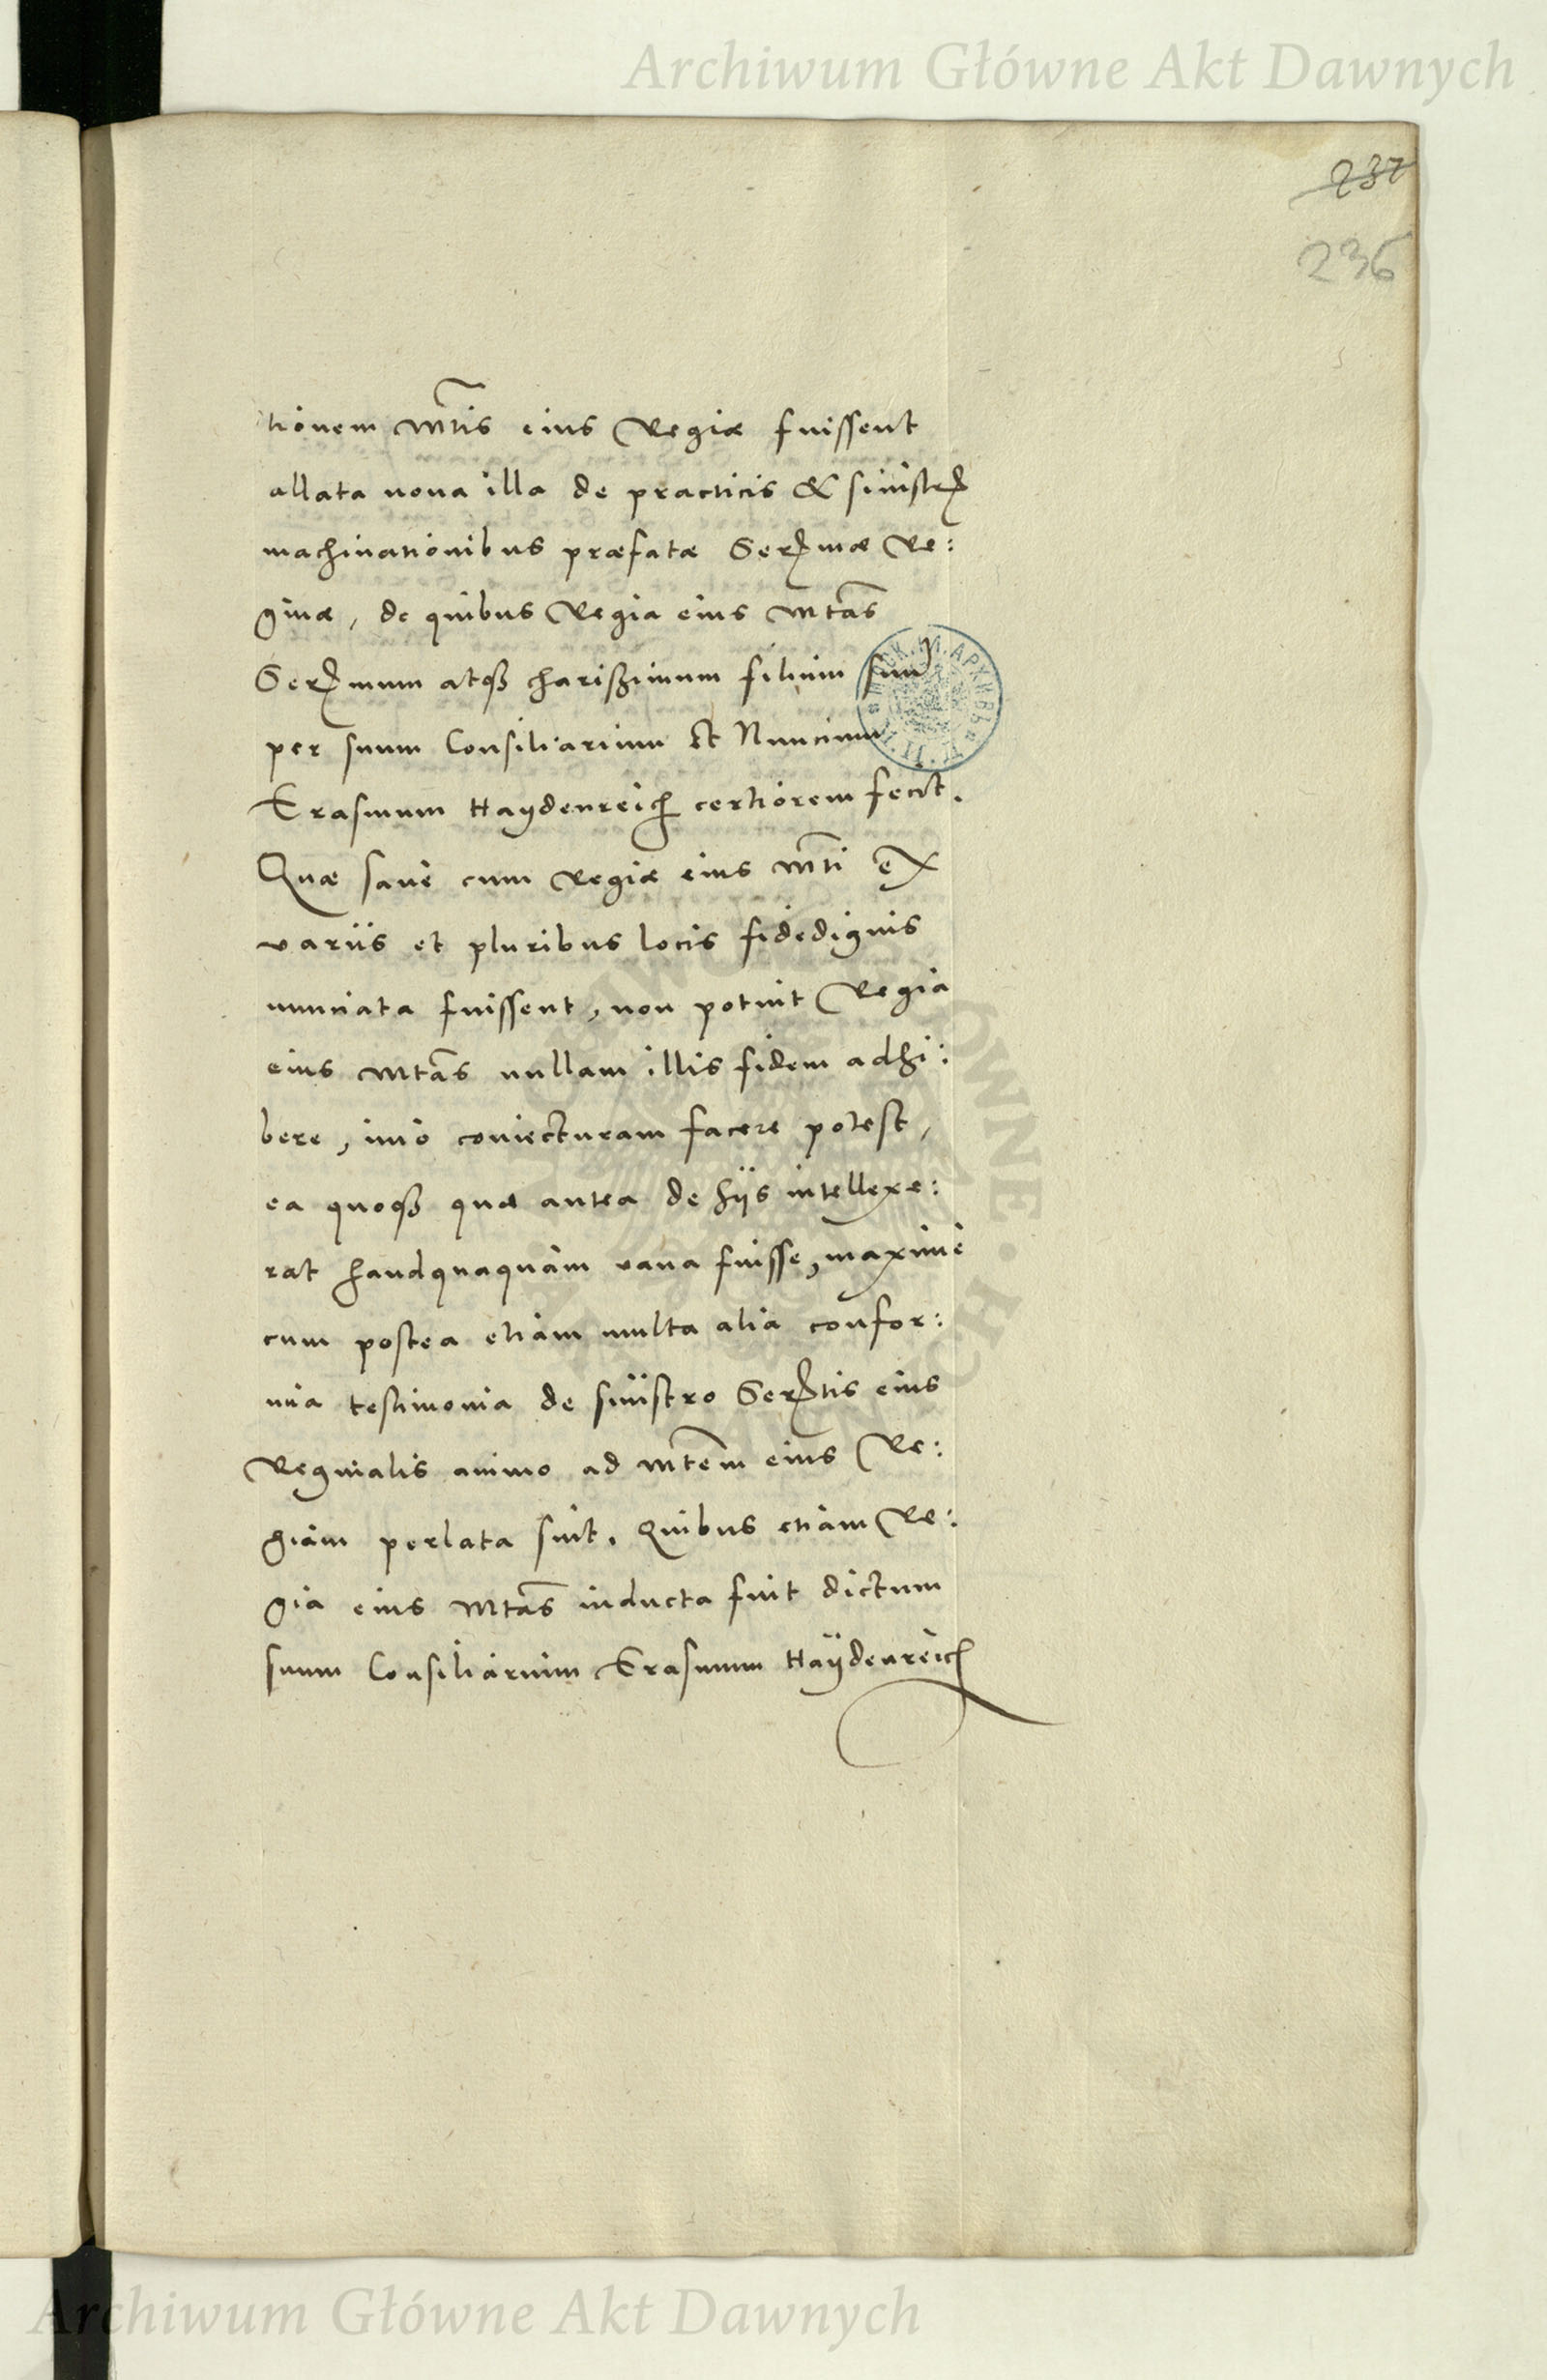 Archiwum Główne Akt Dawnych
237
236
tionem Mtis eius Regiæ fuissent
allata nova illa de practicis & sinistr
machinationibus præfatæ Sermæ Re:
ginæ, de quibus Regia eius Mtas
Sermum atq charißimum filium suu
per suum Consiliarium Et Nuncium
Erasmum Haydenreich certiorem fecit.
Quæ sane cum Regiæ eius Mti ex
variis et pluribus locis fidedignis
nunciata fuissent, non potuit Regia
eius Mtas nullam illis fidem adhi:
bere, imo coniecturam facere potest,
ea quoq quæ antea de hijs intellexe:
rat haudquaquam vana fuisse, maxime
cum postea etiam multa alia confor:
mia testimonia de sinistro Sertis eius
Reginalis animo ad Mtem eius Re:
giam perlata sint. Quibus etiam Re:
gia eius Mtas inducta fuit dictum
suum Consiliarium Erasmum Haÿdenreich
Archiwum Główne Akt Dawnych